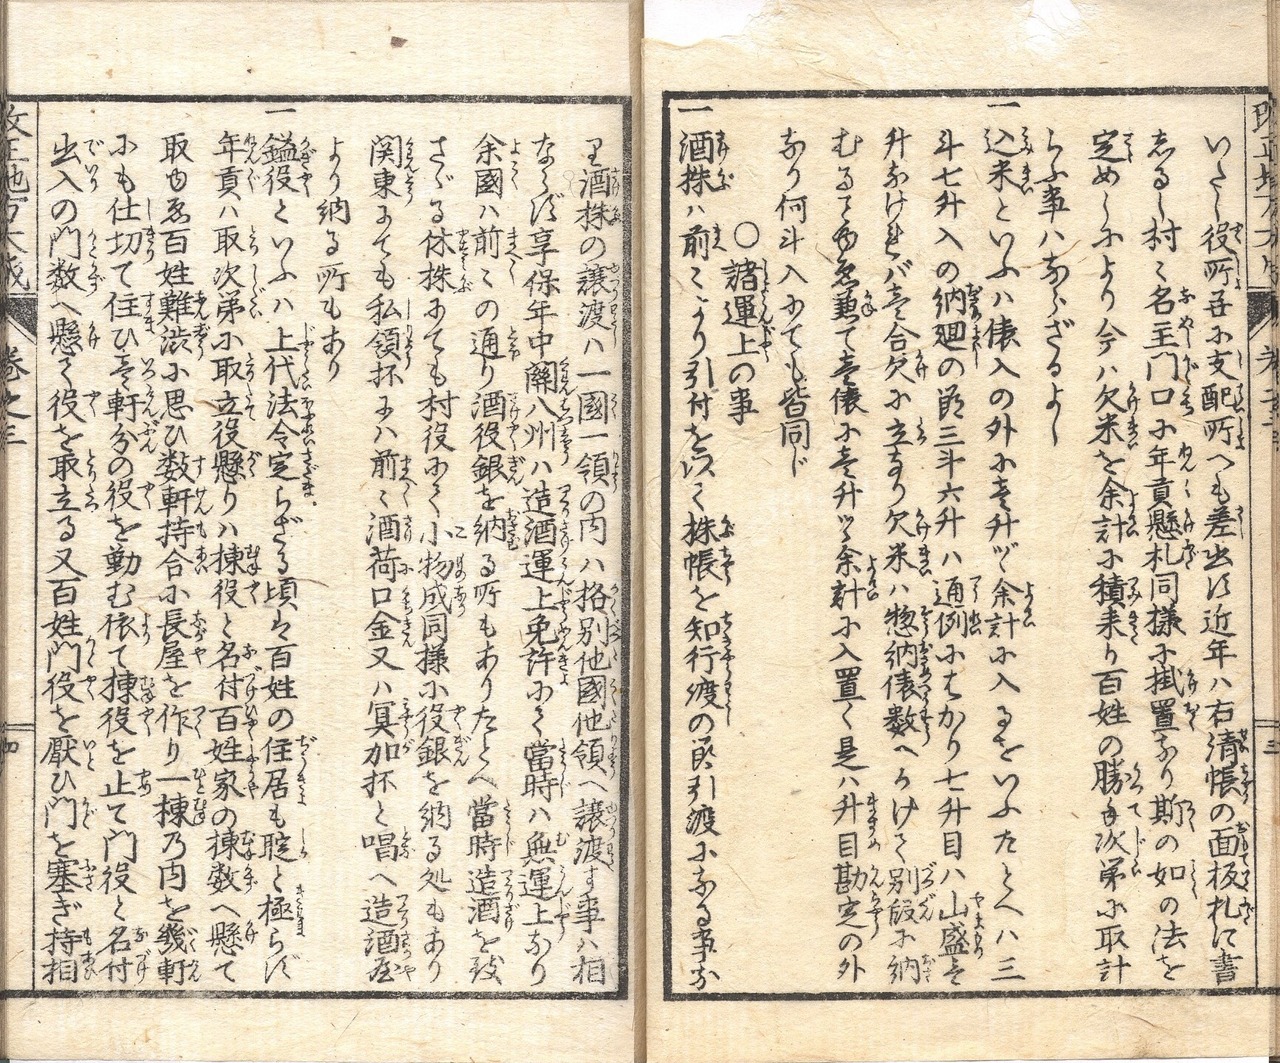 いたし役所并に支配所へも差出す近年ハ右清帳の面板札に書
しるし村々名主門口に年貢懸札同様に掛置なり斯の如の法を
定めしにより今ハ欠米を余計に積来り百姓の勝手次第に取計
らふ事ハならざるよし
一込米といふハ俵入の外に壱升ヅヽ余計に入るをいふたとヘハ三
斗七升入の納廻の節三斗六升ハ通例にはかり七升目ハ山盛壱
升なければ壱合欠に立なり欠米ハ惣納俵数へかけて別段に納
むるゆゑ兼て壱俵に壱升ヅヽ余計に入置く是ハ升目勘定の外
なり何斗入にても皆同じ
○諸運上の事
一酒株ハ前々より引付を以て株帳を知行渡の節引渡になる事な
り酒株の譲渡ハ一國一領の内ハ格別他國他領へ譲渡す事ハ相
ならず享保年中關八州ハ造酒運上免許にて當時ハ無運上なり
余國ハ前々の通り酒役銀を納る所もありたとへ當時造酒を致
さゞる休株にても村役にて小物成同様に役銀を納る処もあり
関東にても私領抔にハ前々酒荷口金又ハ冥加抔と唱へ造酒屋
より納る所もあり
一鎰役といふハ上代法令定らざる頃は百姓の住居も聢と極らず
年貢ハ取次弟に取立役懸りハ棟役と名付百姓家の棟数へ懸て
取ゆゑ百姓難渋に思ひ数軒持合に長屋を作り一棟乃内を幾軒
にも仕切て住ひ壱軒分の役を勤む依て棟役を止て門役と名付
出入の門数へ懸て役を取立る又百姓門役を厭ひ門を塞ぎ持相
改正地方大成
巻之三
三
四